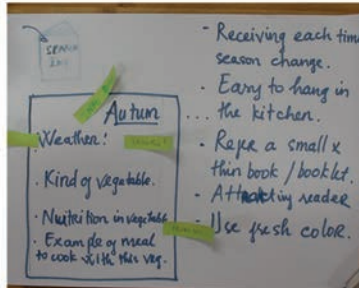 SEARCH
Autum
Weather:
· Kind of vegetable.
· Nutrition in vegetable
· Example of meal
to cook with this veg.
- Receiving each time
season change.
- Easy to hang in
... the kitchen.
- a small x
thin book / booklet.
- Attracting reader
- Use fresh color.